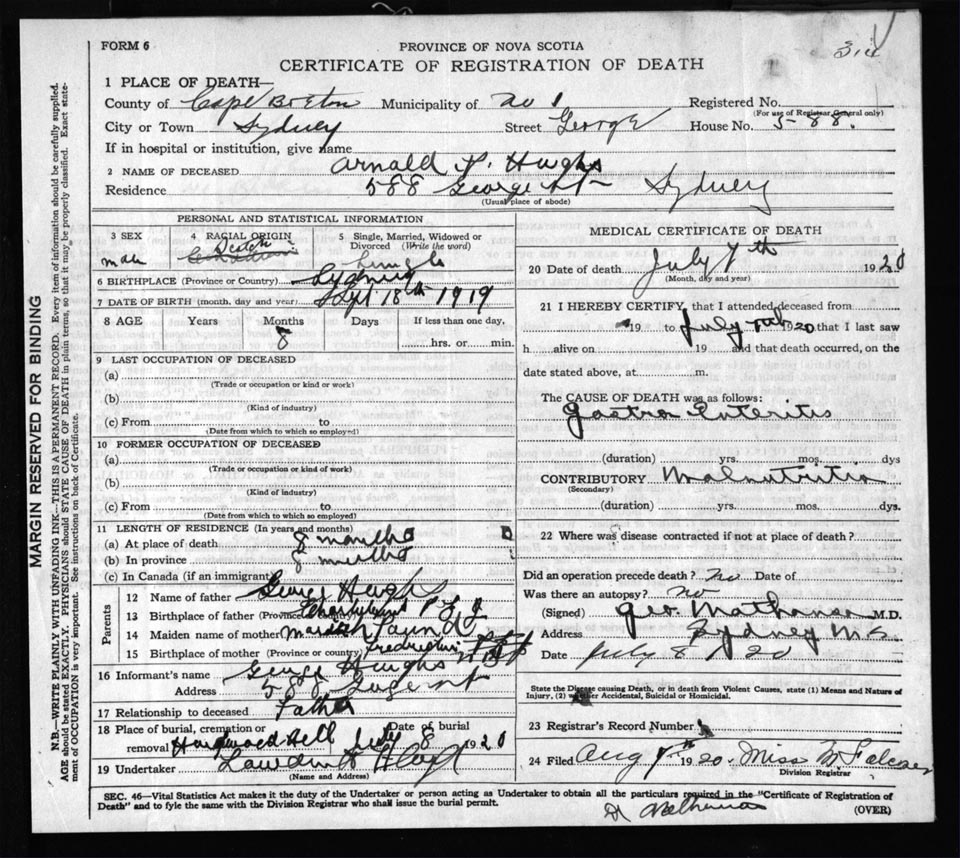 FORM 6
PROVINCE OF NOVA SCOTIA
CERTIFICATE OF REGISTRATION OF DEATH
MARGIN RESERVED FOR BINDING
N.B.—WRITE PLAINLY WITH UNFADING INK—THIS IS A PERMANENT RECORD. Every item of information should be carefully supplied.
AGE should be stated EXACTLY. PHYSICIANS should STATE CAUSE OF DEATH in plain terms, so that it may be properly classified. Exact state-
ment of OCCUPATION is very important. See instructions on back of Certificate.
1 PLACE OF DEATH—
County of Cape Breton Municipality of No 1 Registered No.
(For use of Registrar General only)
City or Town Sydney Street George House No. 588.
If in hospital or institution, give name
2 NAME OF DECEASED Arnald P. Hughs
Residence 588 George St Sydney
(Usual place of abode)
PERSONAL AND STATISTICAL INFORMATION
3 SEX
male
4 RACIAL ORIGIN
Scotch
5 Single, Married, Widowed or Divorced (Write the word)
Single
6 BIRTHPLACE (Province or Country) Sydney
7 DATE OF BIRTH (month, day and year) Sept 18th 1919
8 AGE Years Months Days If less than one day,
8 hrs. or min.
9 LAST OCCUPATION OF DECEASED
(a)
(Trade or occupation or kind or work)
(b)
(Kind of industry)
(c) From to
(Date from which to which so employed)
10 FORMER OCCUPATION OF DECEASED
(a)
(Trade or occupation or kind of work)
(b)
(Kind of industry)
(c) From to
(Date from which to which so employed)
11 LENGTH OF RESIDENCE (In years and months)
(a) At place of death 8 months
(b) In province 8 months
(c) In Canada (if an immigrant)
Parents
12 Name of father George Hughs
13 Birthplace of father (Province or country) P E I
14 Maiden name of mother
15 Birthplace of mother (Province or country)
16 Informant's name George Hughs
Address 588 George St
17 Relationship to deceased Father
18 Place of burial, cremation or removal Hardwood Hill Date of burial July 8 1920
19 Undertaker
(Name and Address)
MEDICAL CERTIFICATE OF DEATH
20 Date of death July 7th 1920
(Month, day and year)
21 I HEREBY CERTIFY, that I attended deceased from
19 to July 7th 1920 that I last saw
h alive on 19 and that death occurred, on the
date stated above, at m.
The CAUSE OF DEATH was as follows:
Gastro Enteritis
(duration) yrs. mos. dys
CONTRIBUTORY Malnutrition
(Secondary)
(duration) yrs. mos. dys.
22 Where was disease contracted if not at place of death?
Did an operation precede death? No Date of
Was there an autopsy? No
(Signed) Geo. M.D.
Address Sydney N.S.
Date July 8 1920
State the Disease causing Death, or in death from Violent Causes, state (1) Means and Nature of
Injury, (2) whether Accidental, Suicidal or Homicidal.
23 Registrar's Record Number
24 Filed Aug 1920. Miss
Division Registrar
SEC. 46—Vital Statistics Act makes it the duty of the Undertaker or person acting as Undertaker to obtain all the particulars required in the "Certificate of Registration of
Death" and to fyle the same with the Division Registrar who shall issue the burial permit.
(OVER)